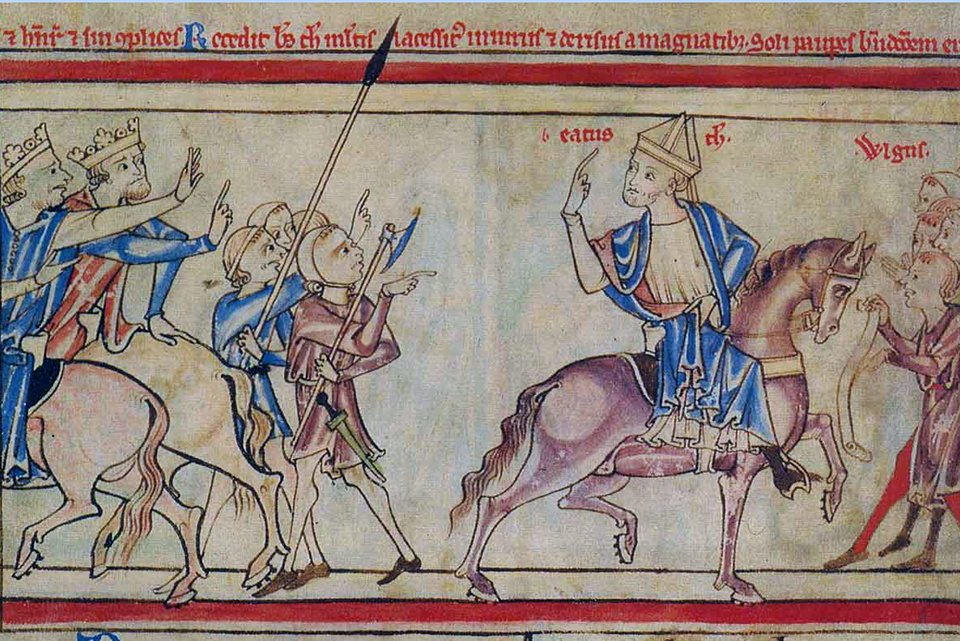 ⁊ hn̄r̄ ⁊ sui ꝯplices Recedit bs̄ th̄ ml̄tis lacessit᷒ iniuriis ⁊ derisus a magnatibꝫ. Soli paupes bn̄dc̄oem ei
beatus th̄.
Wlgus.